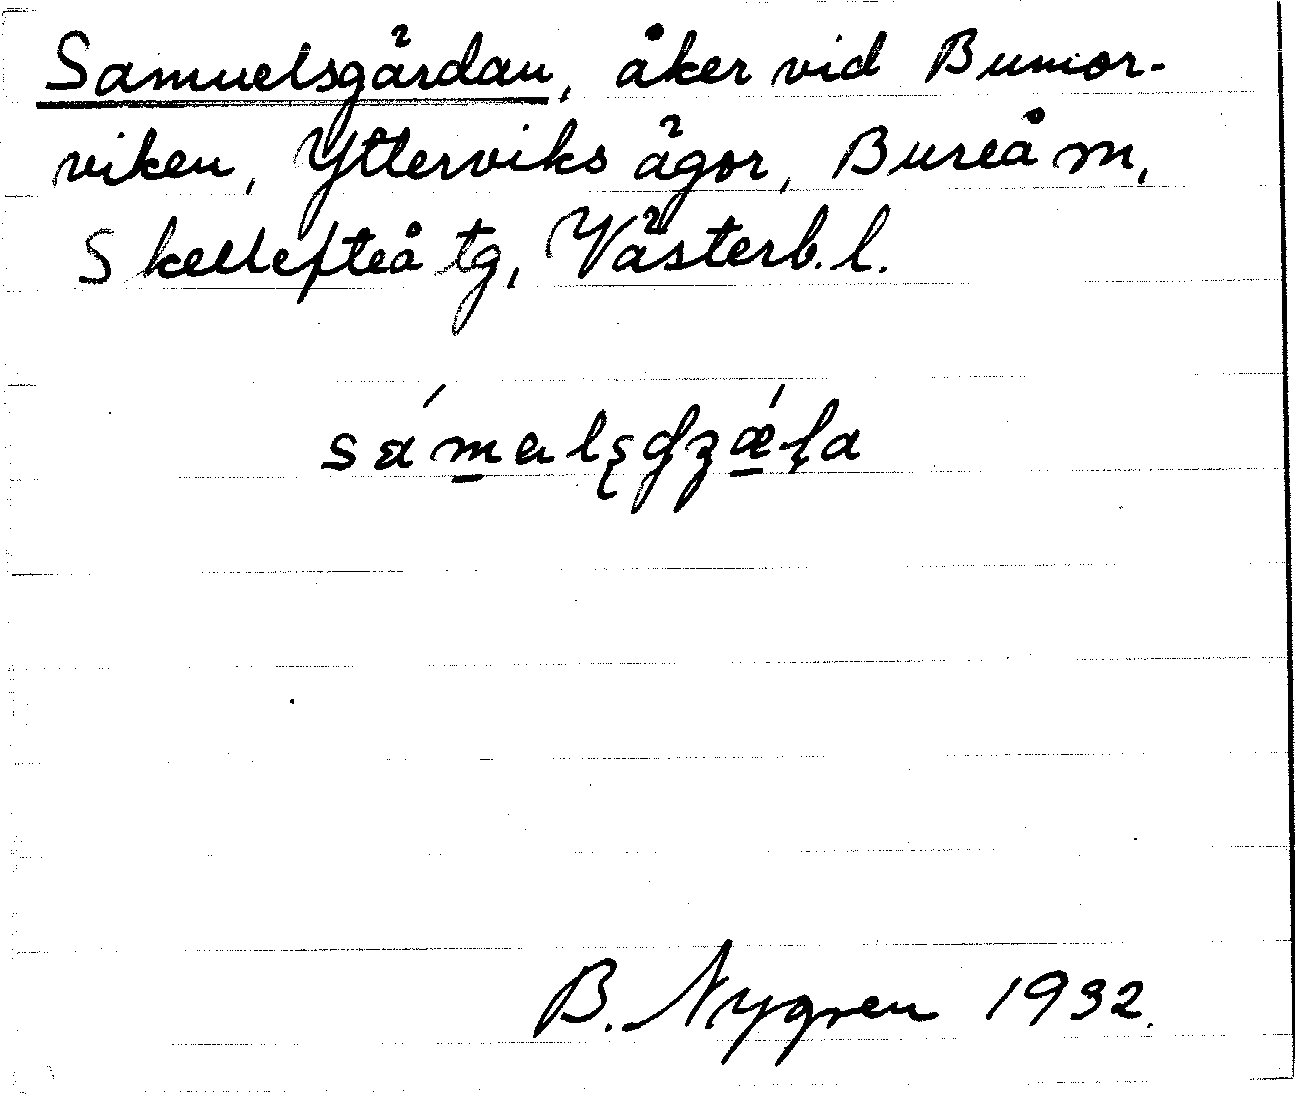 Samuelsgärdan, åker vid Bumor-
viken, Ytterviks ägor, Bureå m,
Skellefteå tg, Västerb. l.
B. Nygren 1932.